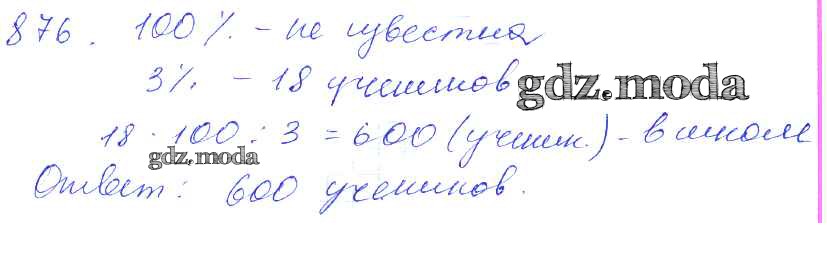 876. 100% - не известна
3% - 18 учеников
gdz.moda
18 · 100 : 3 = 600 (ученик.) - в школе
gdz.moda
Ответ: 600 учеников.